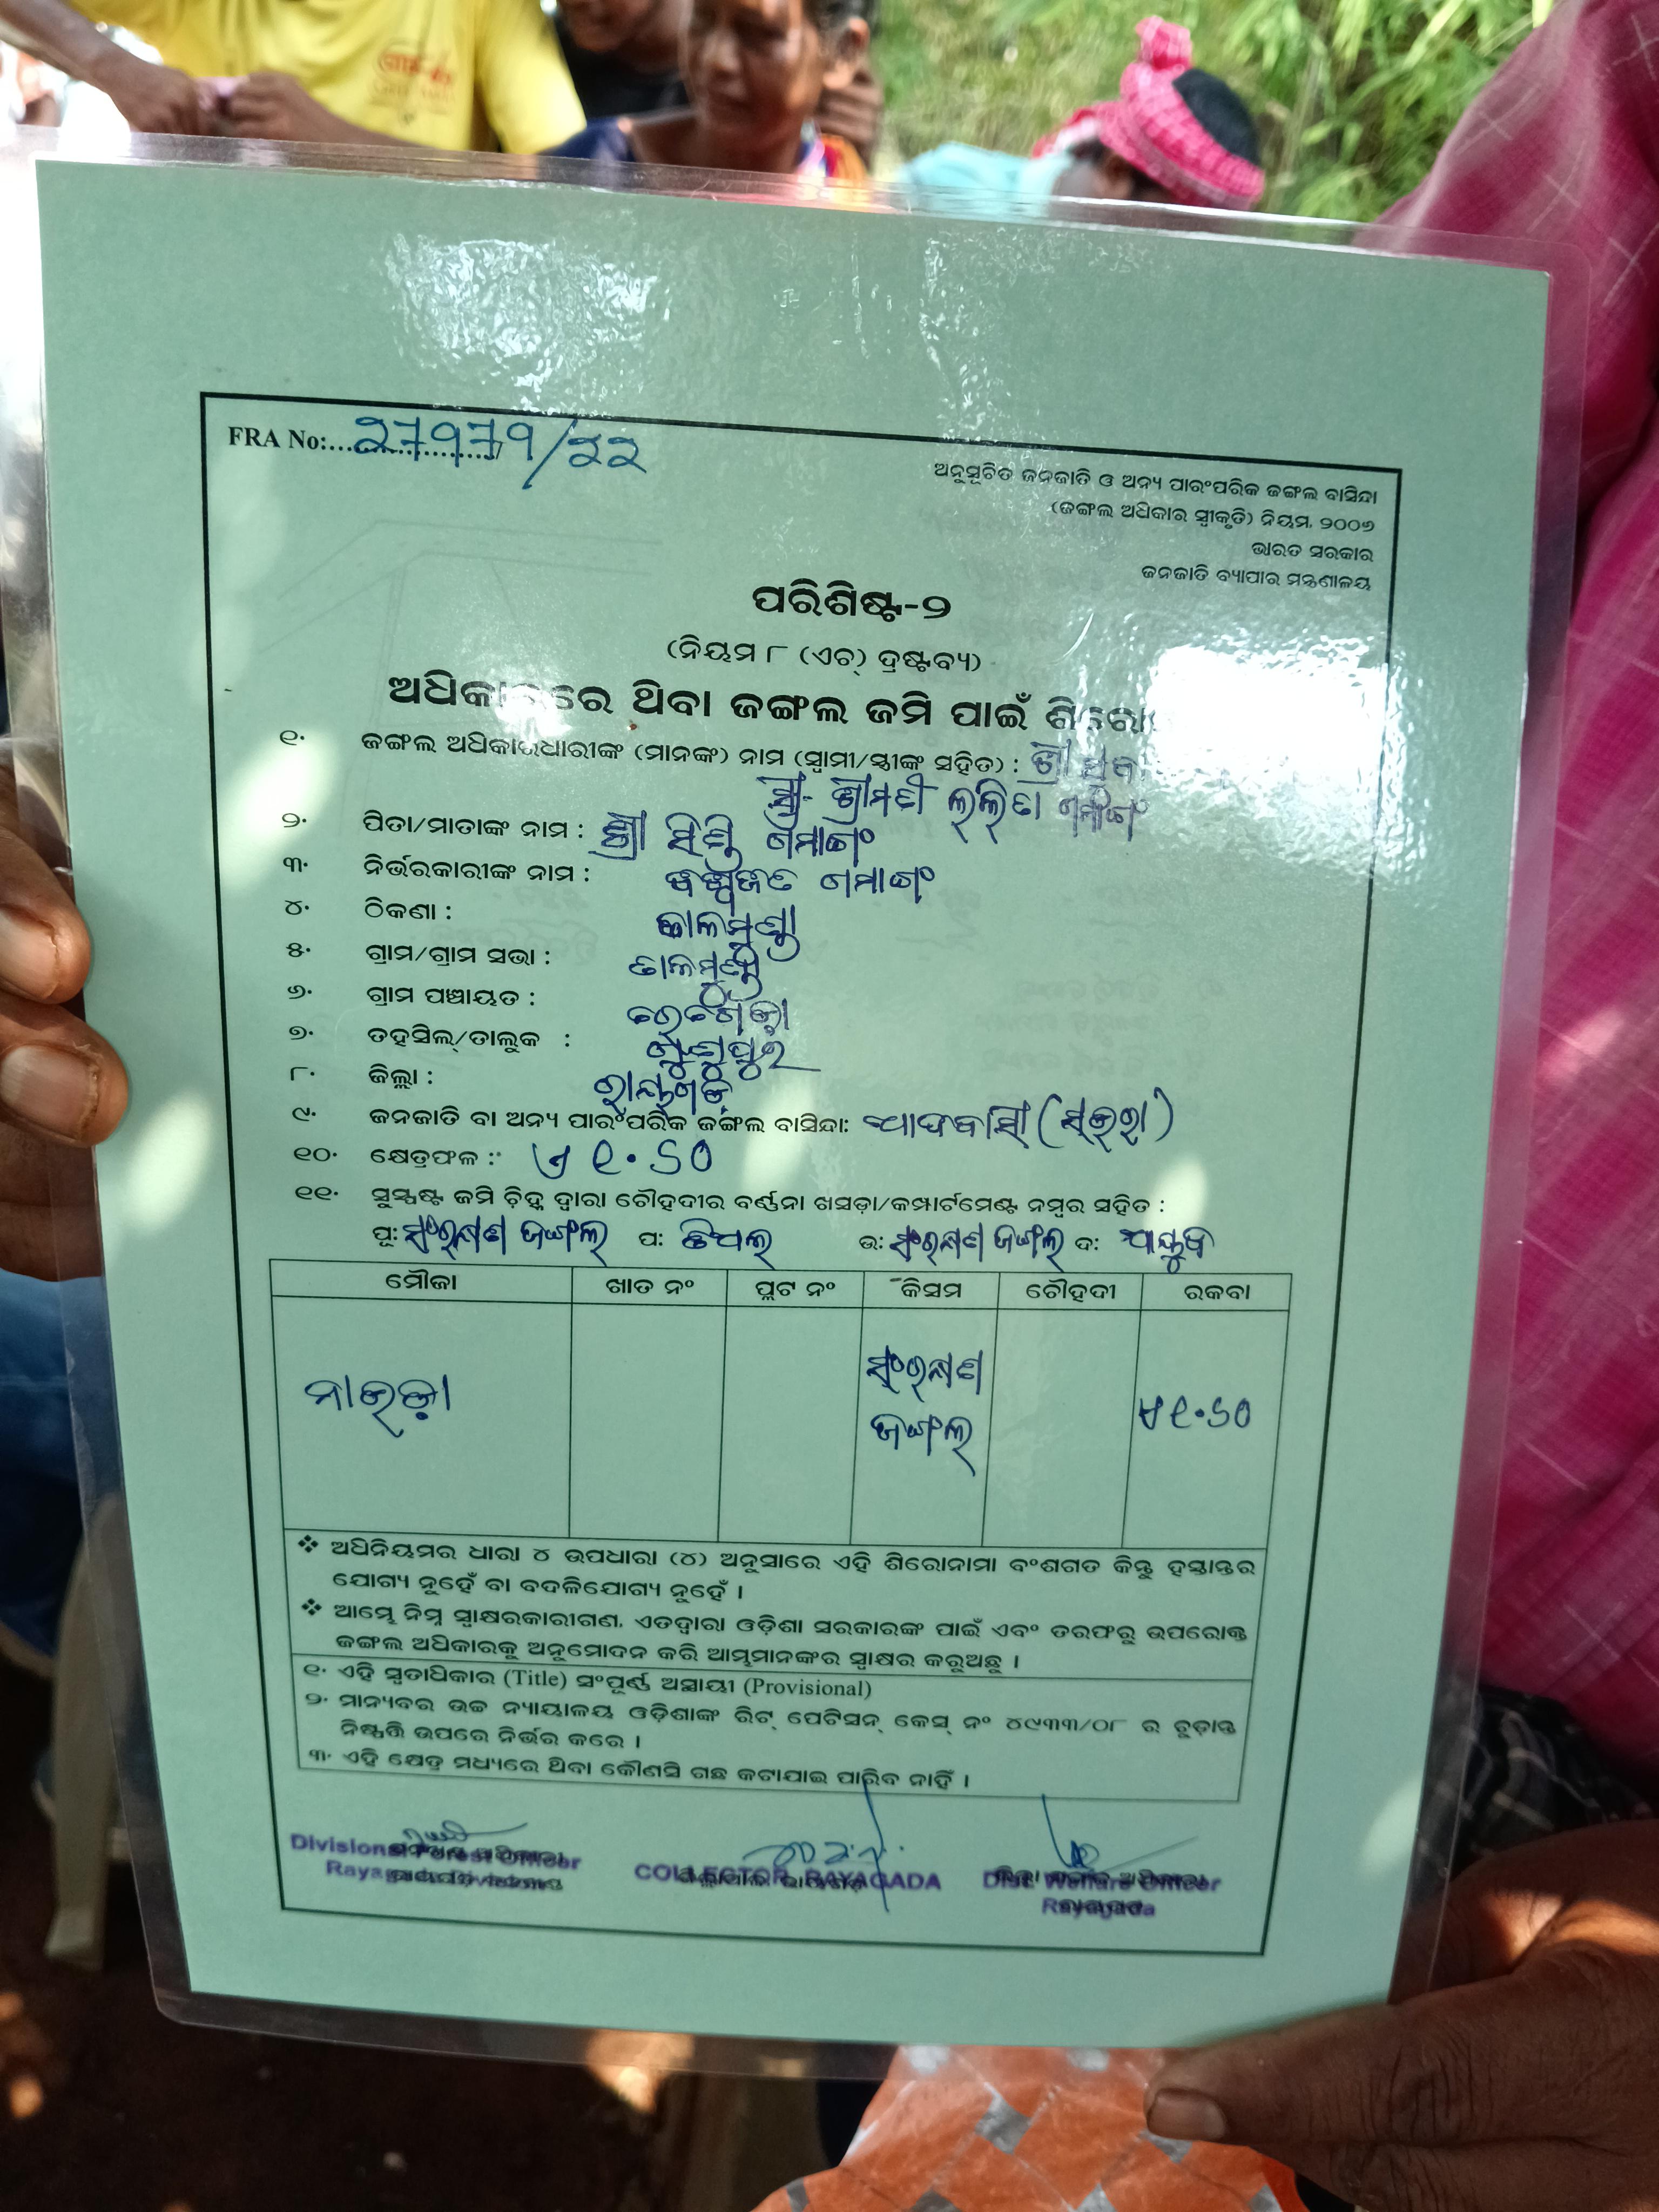 FRA No:
ଅନୁସୂଚିତ ଜନଜାତି ଓ ଅନ୍ୟ ପାରଂପରିକ ଜଙ୍ଗଲ ବାସିନ୍ଦା
(ଜଙ୍ଗଲ ଅଧିକାର ସ୍ୱୀକୃତି) ନିୟମ, ୨୦୦୭
ଭାରତ ସରକାର
ଜନଜାତି ବ୍ୟାପାର ମନ୍ତ୍ରଣାଳୟ
ପରିଶିଷ୍ଟ-୨
(ନିୟମ ୮ (ଏଚ୍) ଦ୍ରଷ୍ଟବ୍ୟ)
ଥିବା ଜଙ୍ଗଲ ଜମି ପାଇଁ
୧. ଜଙ୍ଗଲ ଅଧିକାରଧାରୀଙ୍କ (ମାନଙ୍କ) ନାମ (ସ୍ୱାମୀ/ସ୍ତ୍ରୀଙ୍କ ସହିତ) : ଶ୍ରୀ
ସ୍ତ୍ରୀ- ଶ୍ରୀମତୀ ଲଲିତା ଗମାଙ୍ଗ
୨. ପିତା/ମାତାଙ୍କ ନାମ : ଶ୍ରୀ ଗମାଙ୍ଗ
୩. ନିର୍ଭରକାରୀଙ୍କ ନାମ : ଗମାଙ୍ଗ
୪. ଠିକଣା : ତାଳମୁଣ୍ଡା
୫. ଗ୍ରାମ/ଗ୍ରାମ ସଭା : ତାଳମୁଣ୍ଡା
୬. ଗ୍ରାମ ପଞ୍ଚାୟତ :
୭. ତହସିଲ୍/ତାଲୁକ : ଗୁଣୁପୁର
୮. ଜିଲ୍ଲା : ରାୟଗଡ଼
୯. ଜନଜାତି ବା ଅନ୍ୟ ପାରଂପରିକ ଜଙ୍ଗଲ ବାସିନ୍ଦା: ଆଦିବାସୀ (ସଉରା)
୧୦. କ୍ଷେତ୍ରଫଳ : ଏ ୧.୬୦
୧୧. ସୁସ୍ପଷ୍ଟ ଜମି ଚିହ୍ନ ଦ୍ୱାରା ଚୌହଦୀର ବର୍ଣ୍ଣନା ଖସଡ଼ା/କମ୍ପାର୍ଟମେଣ୍ଟ ନମ୍ବର ସହିତ :
ପୂ: ସଂରକ୍ଷଣ ଜଙ୍ଗଲ ପ: ଉ: ସଂରକ୍ଷଣ ଜଙ୍ଗଲ ଦ:
ମୌଜା ଖାତ ନଂ ପ୍ଲଟ ନଂ କିସମ ଚୌହଦୀ ରକବା
ନାଇଡ଼ା ସଂରକ୍ଷଣ ଜଙ୍ଗଲ ଏ ୧.୬୦
❖ ଅଧିନିୟମର ଧାରା ୪ ଉପଧାରା (୪) ଅନୁସାରେ ଏହି ଶିରୋନାମା ବଂଶଗତ କିନ୍ତୁ ହସ୍ତାନ୍ତର
ଯୋଗ୍ୟ ନୁହେଁ ବା ବଦଳିଯୋଗ୍ୟ ନୁହେଁ ।
❖ ଆମ୍ଭେ ନିମ୍ନ ସ୍ୱାକ୍ଷରକାରୀଗଣ, ଏତଦ୍ୱାରା ଓଡ଼ିଶା ସରକାରଙ୍କ ପାଇଁ ଏବଂ ତରଫରୁ ଉପରୋକ୍ତ
ଜଙ୍ଗଲ ଅଧିକାରକୁ ଅନୁମୋଦନ କରି ଆମ୍ଭମାନଙ୍କର ସ୍ୱାକ୍ଷର କରୁଅଛୁ ।
୧. ଏହି ସ୍ୱତାଧିକାର (Title) ସଂପୂର୍ଣ୍ଣ ଅସ୍ଥାୟୀ (Provisional)
୨. ମାନ୍ୟବର ଉଚ୍ଚ ନ୍ୟାୟାଳୟ ଓଡ଼ିଶାଙ୍କ ରିଟ୍ ପେଟିସନ୍ କେସ୍ ନଂ ୪୯୩୩/୦୮ ର ଚୂଡ଼ାନ୍ତ
ନିଷ୍ପତ୍ତି ଉପରେ ନିର୍ଭର କରେ ।
୩. ଏହି କ୍ଷେତ୍ର ମଧ୍ୟରେ ଥିବା କୌଣସି ଗଛ କଟାଯାଇ ପାରିବ ନାହିଁ ।
Divisional Forest Officer
Rayagada Division
COLLECTOR, RAYAGADA
Dist. Welfare Officer
Rayagada